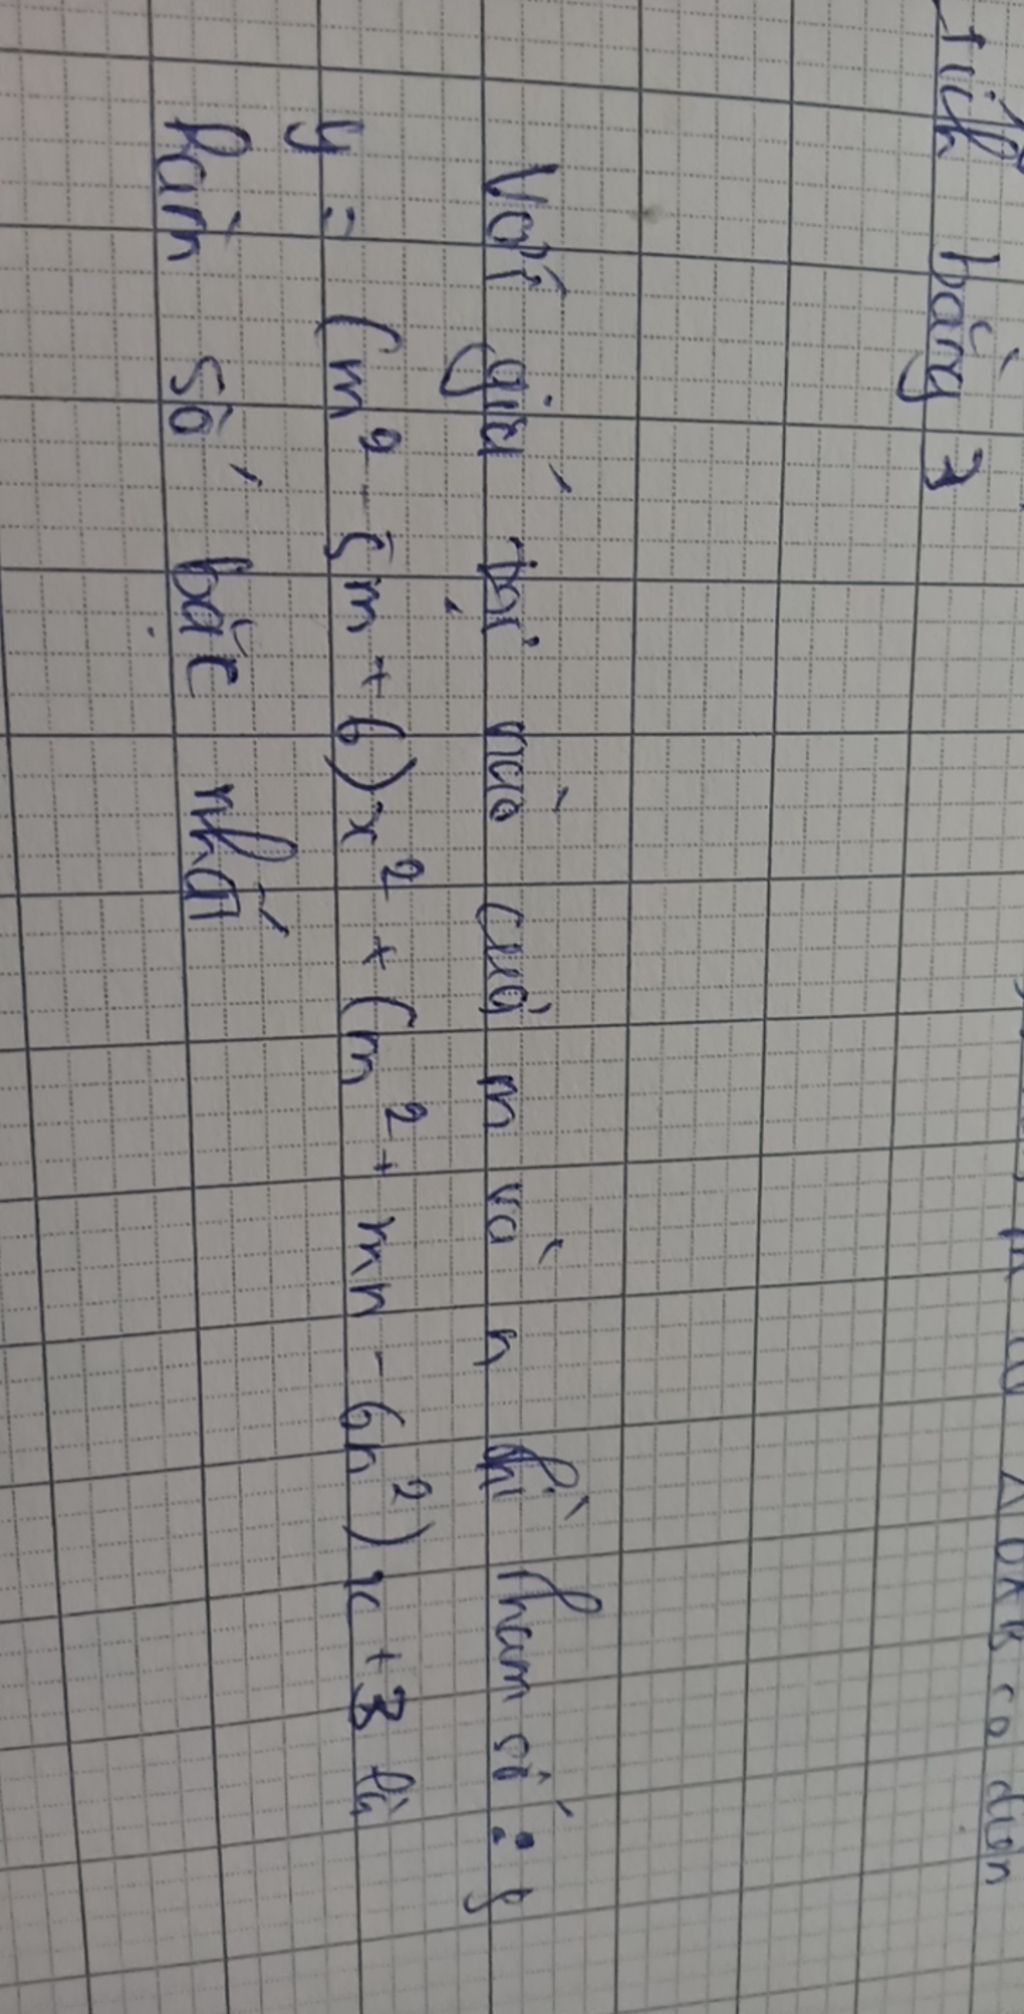 tích bằng 3
Với giá trị nào của m và n thì hàm số : y
y = (m² - 5m + 6)x² + (m² + mn - 6n²)x + 3 là
hàm số bậc nhất